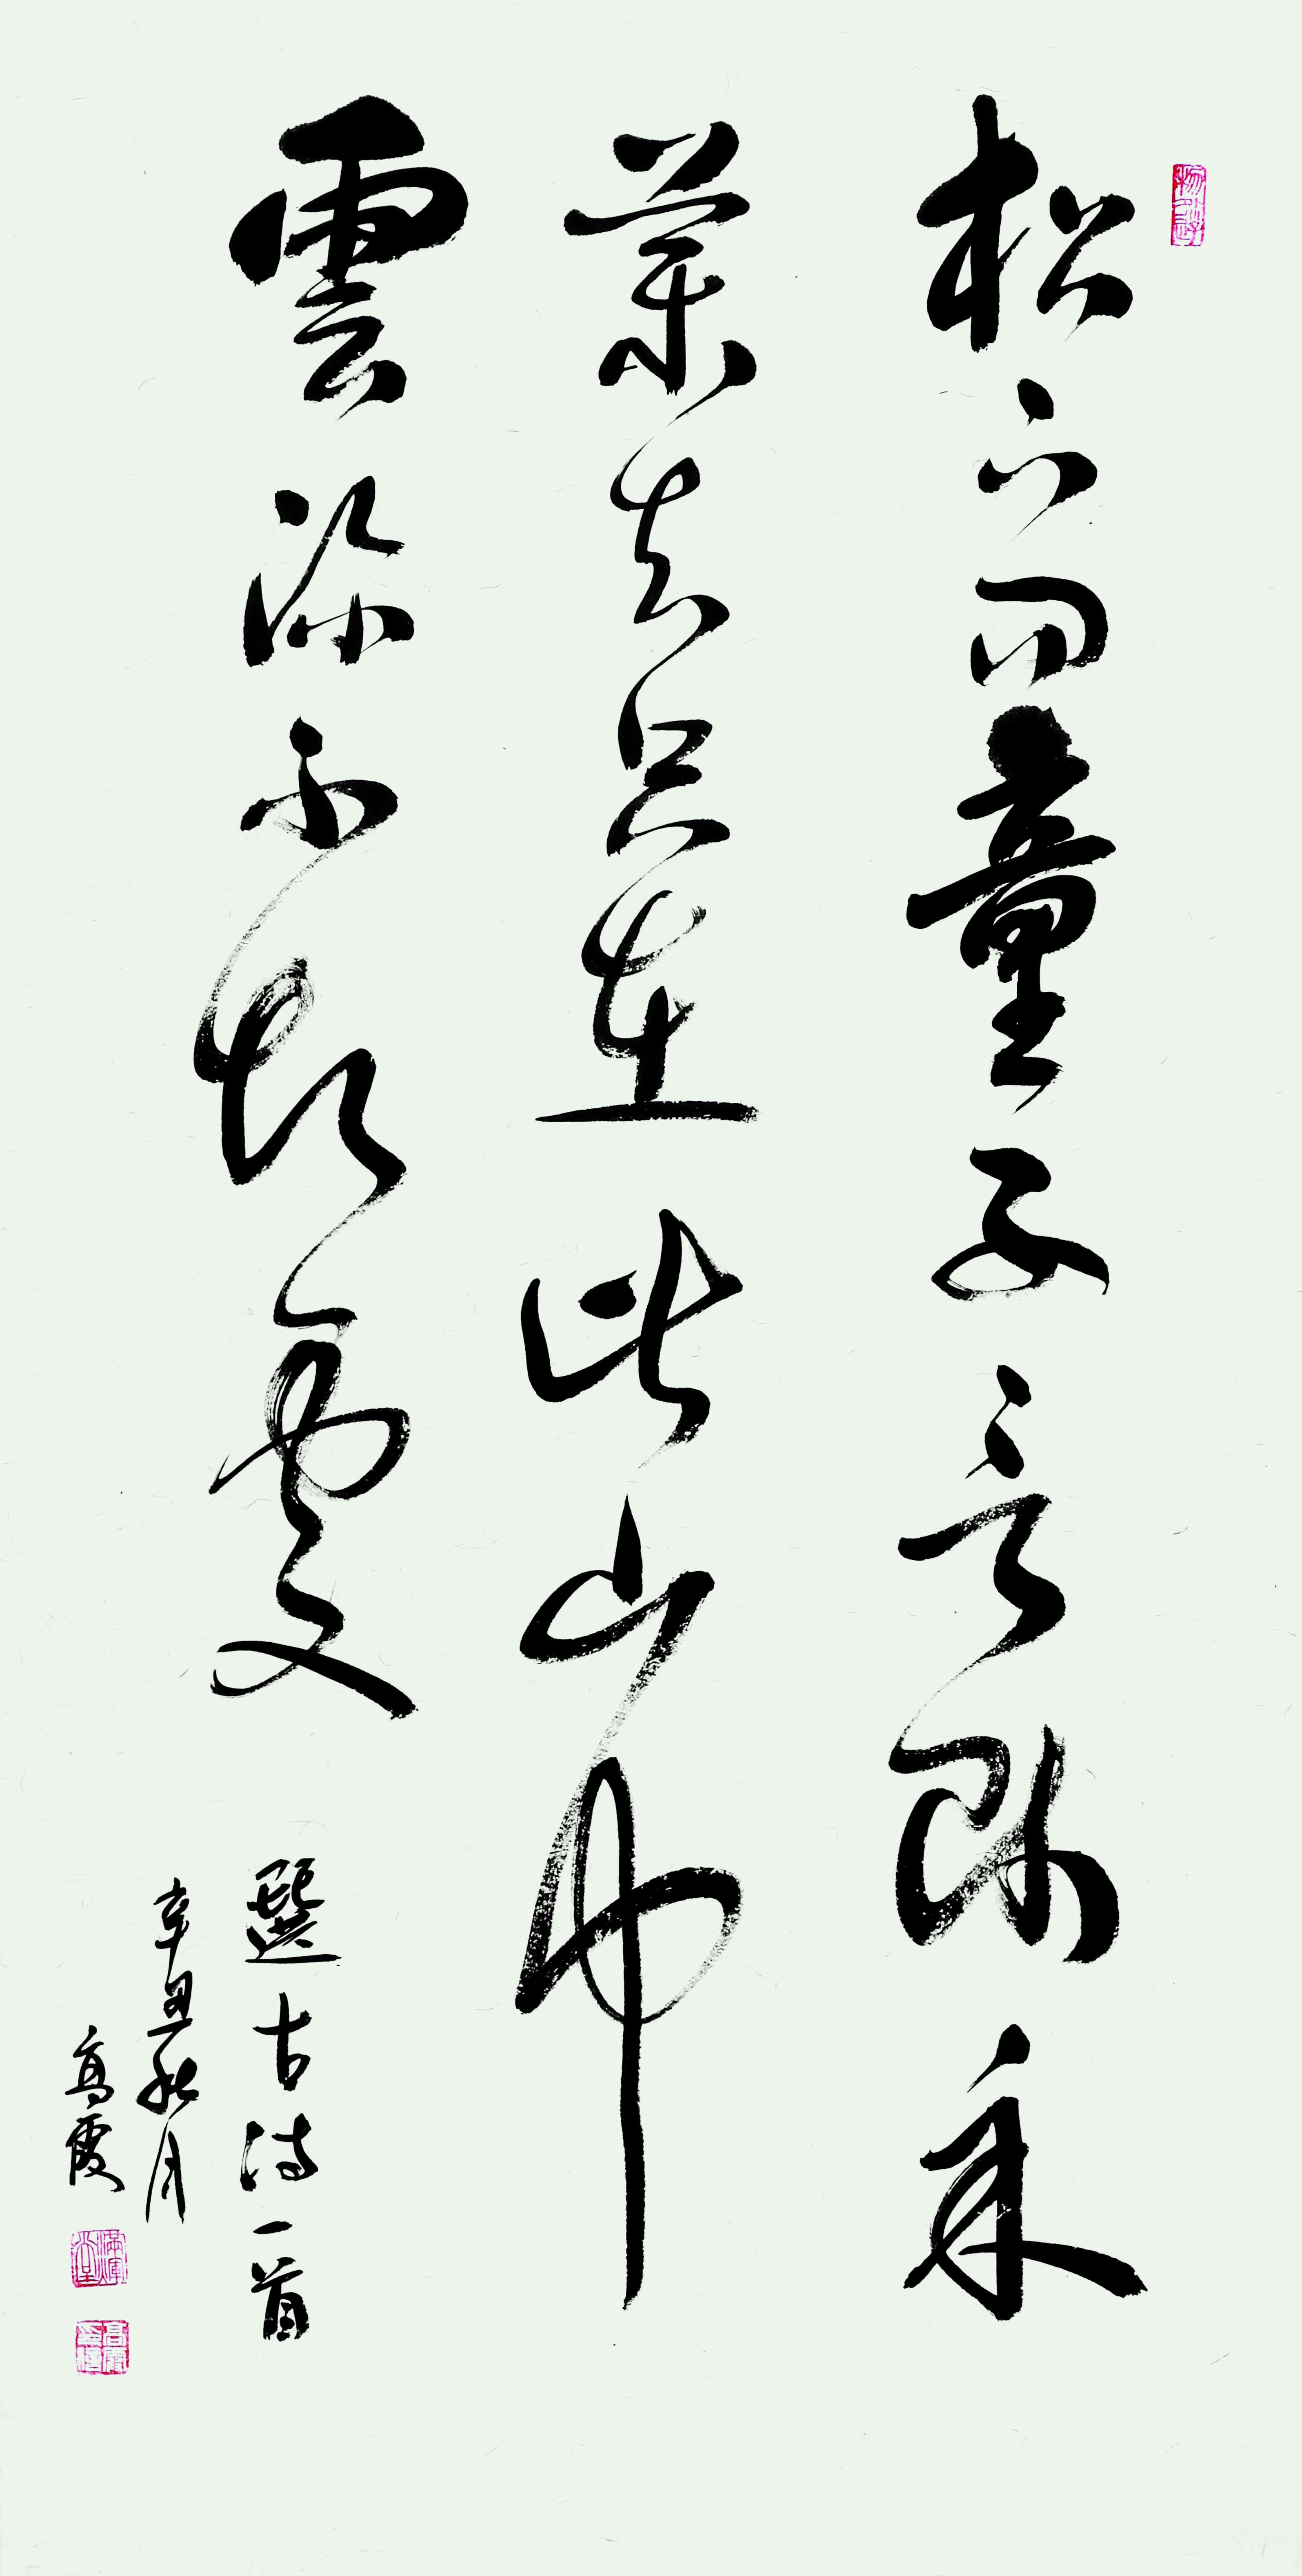 松下問童子言師采
藥去只在此山中
雲深不知處
選古詩一首
辛丑秋月
高霞